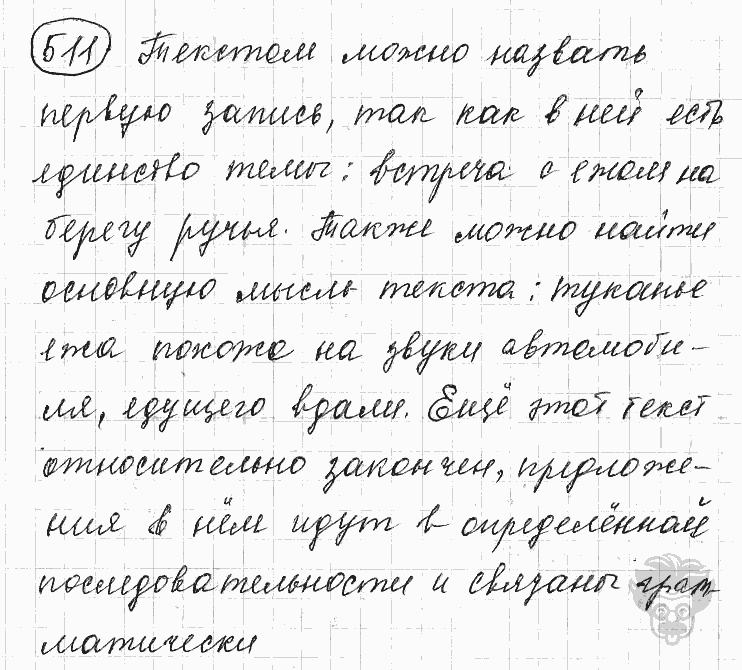 511 Текстом можно назвать
первую запись, так как в ней есть
единство темы: встреча с ежом на
берегу ручья. Также можно найти
основную мысль текста: туканье
ежа похоже на звуки автомоби-
ля, едущего вдали. Ещё этот текст
относительно закончен, предложе-
ния в нём идут в определённой
последовательности и связаны грам-
матически